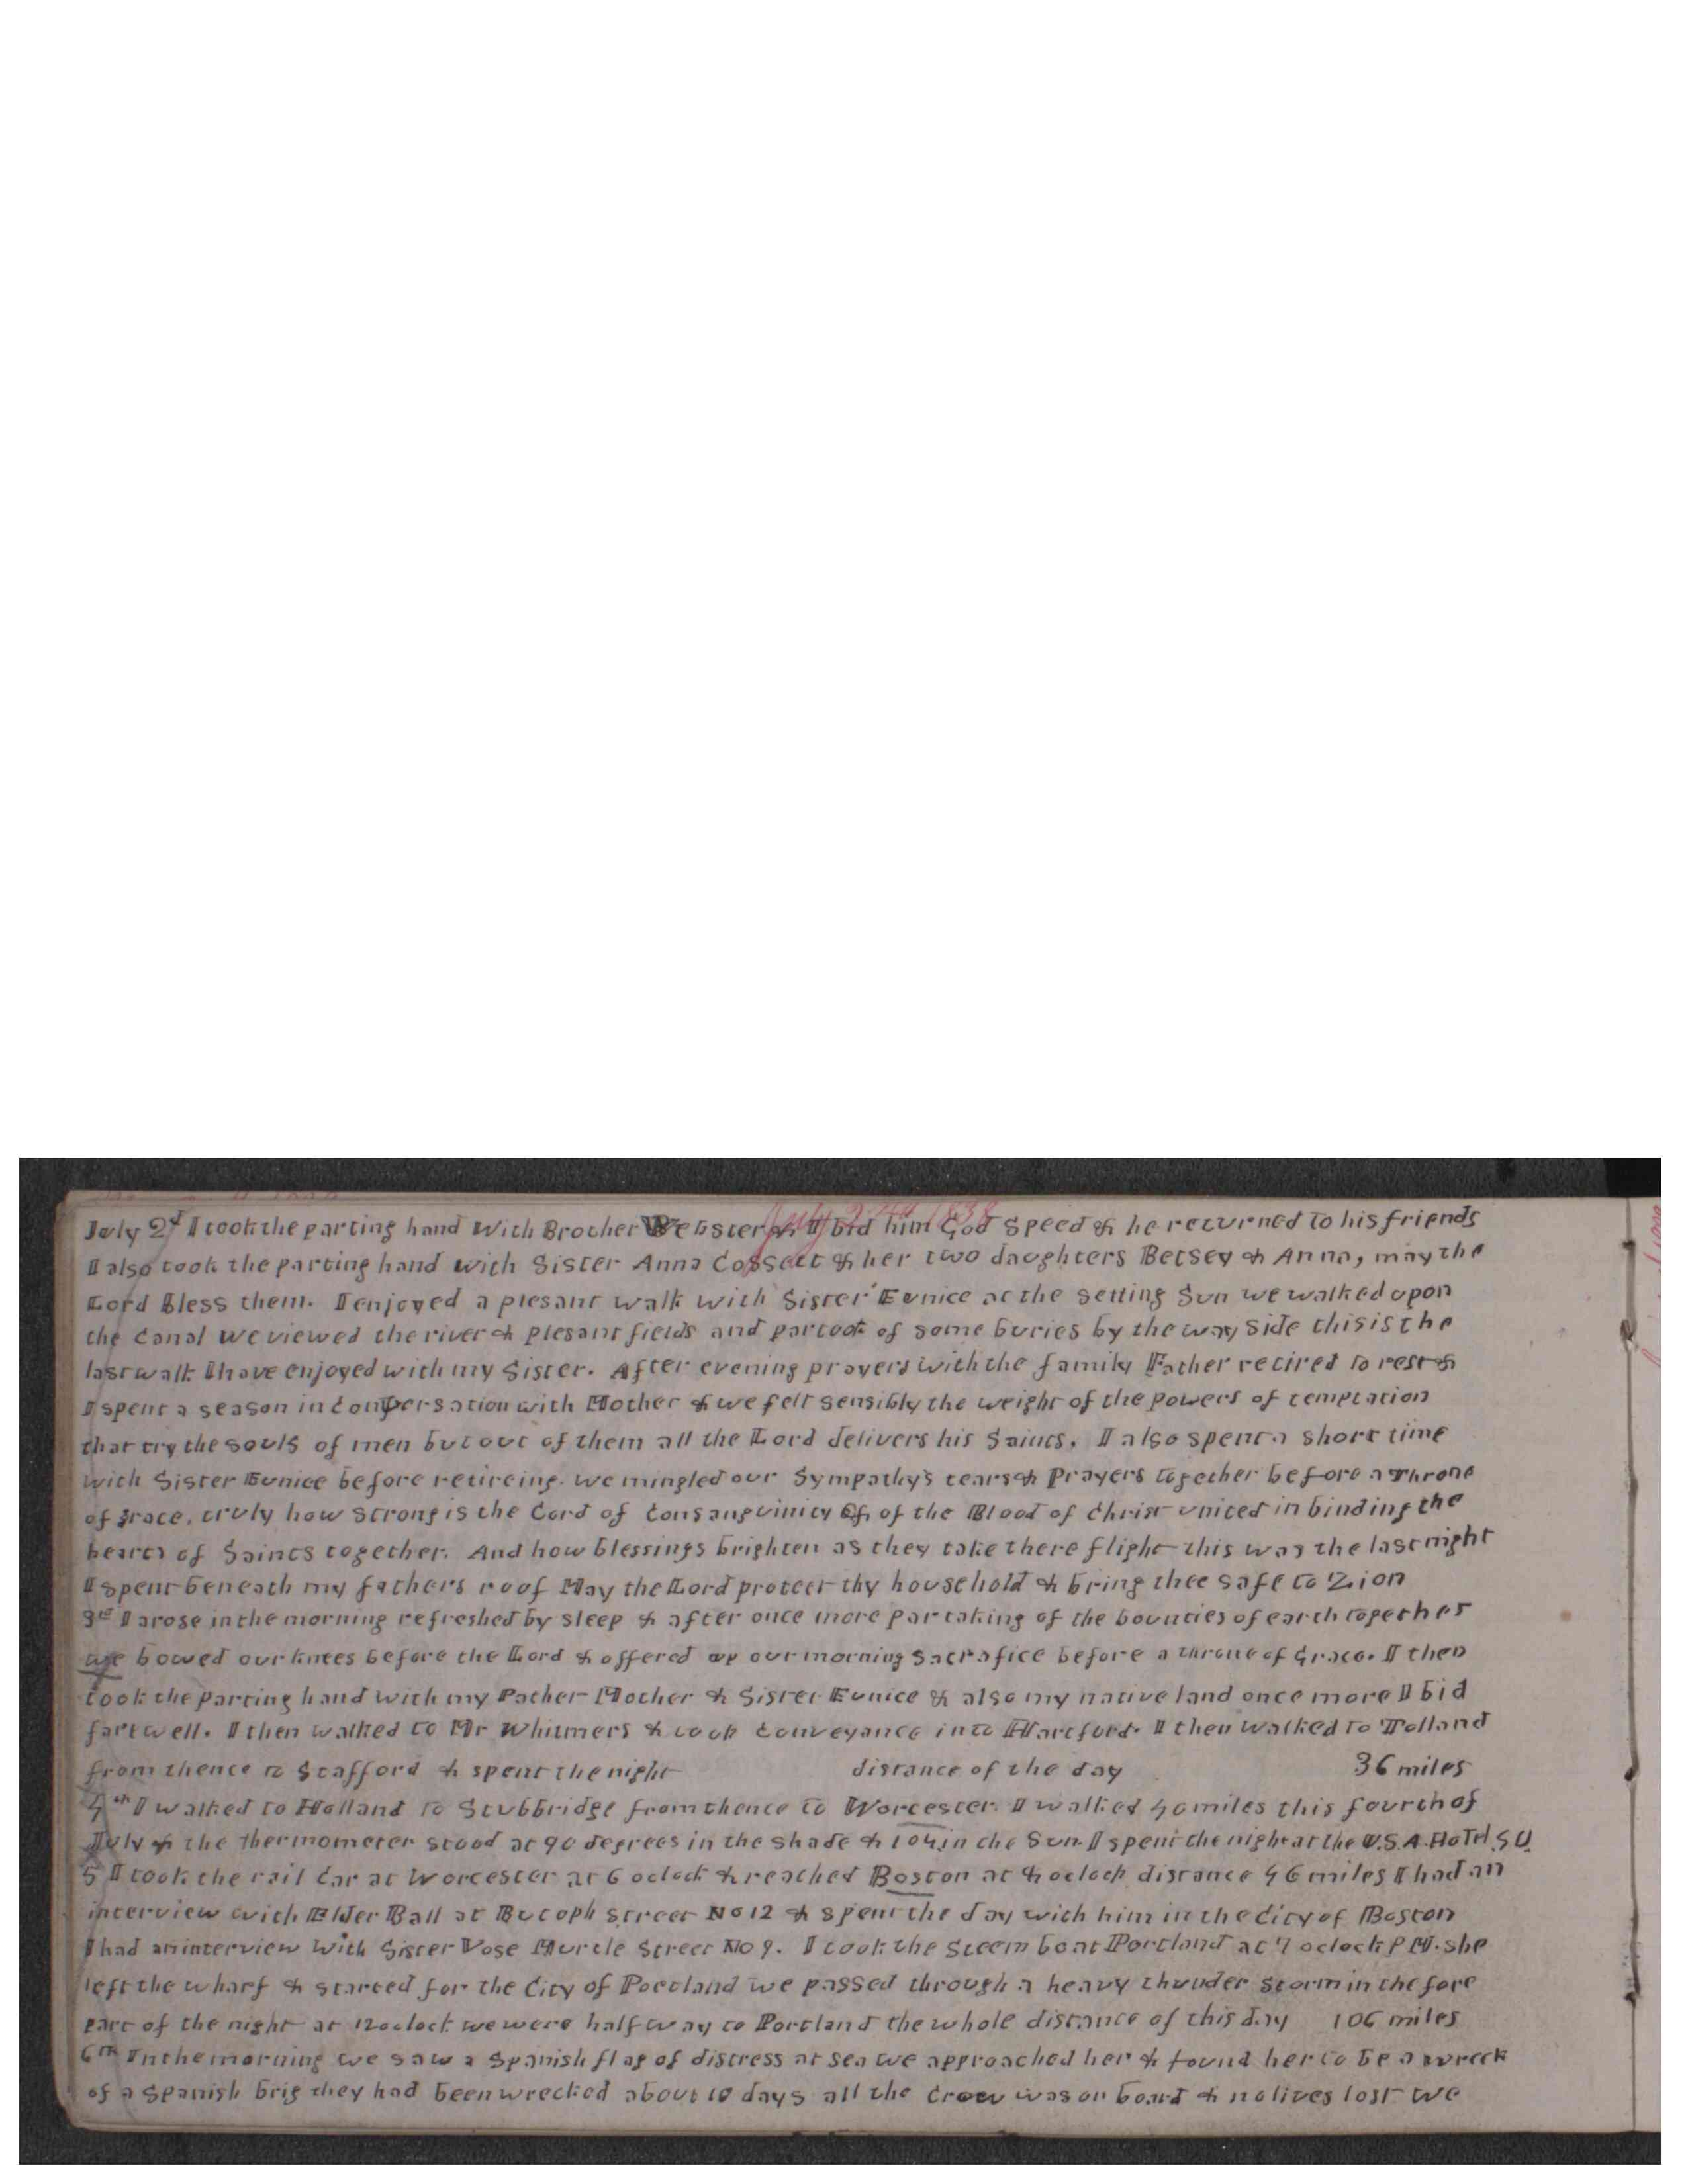 July 2nd 1838
July 2d I took the parting hand With Brother Webster & I bid him God Speed & he returned to his friends
I also took the parting hand with Sister Anna Cossett & her two daughters Betsey & Anna, may the
Lord Bless them. I enjoyed a plesant walk with Sister Eunice at the setting Sun we walked upon
the Canal we viewed the river & plesant fields and partook of some buries by the way side this is the
last walk I have enjoyed with my Sister. After evening prayers with the family Father retired to rest &
I spent a season in conversation with Mother & we felt sensibly the weight of the powers of temptation
that try the souls of men but out of them all the Lord delivers his Saints. I also spent a short time
with Sister Eunice before retireing. we mingled our Sympathy's tears & Prayers together before a Throne
of grace, truly how strong is the Cord of Consanguinity & of the Blood of Christ united in binding the
hearts of Saints together. And how blessings brighten as they take there flight this was the last night
I spent beneath my fathers roof May the Lord protect thy household & bring thee safe to Zion
3rd I arose in the morning refreshed by sleep & after once more partaking of the bounties of earth together
we bowed our knees before the Lord & offered up our morning Sacrafice before a throne of Grace. I then
took the parting hand with my Father Mother & Sister Eunice & also my native land once more I bid
farewell. I then walked to Mr Whitmers & took Conveyance into Hartford. I then walked to Tolland
from thence to Stafford & spent the night distance of the day 36 miles
4th I walked to Holland to Stubbridge from thence to Worcester. I walked 40 miles this fourth of
July & the thermometer stood at 90 degrees in the shade & 104 in the Sun. I spent the night at the U.S.A. HoTel. 50.
5 I took the rail Car at Worcester at 6 oclock & reached Boston at oclock distance 46 miles I had an
interview with Elder Ball at Butoph street No 12 & spent the day with him in the City of Boston
I had an interview with Sister Vose Murtle Street No 9. I took the Steem boat Portland at 7 oclock P M. she
left the wharf & started for the City of Portland we passed through a heavy thunder storm in the fore
part of the night at 12 oclock we were half way to Portland the whole distance of this day 106 miles
6th In the morning we saw a Spanish flag of distress at sea we approached her & found her to be a wreck
of a Spanish brig they had been wrecked about 10 days all the Crew was on board & no lives lost we